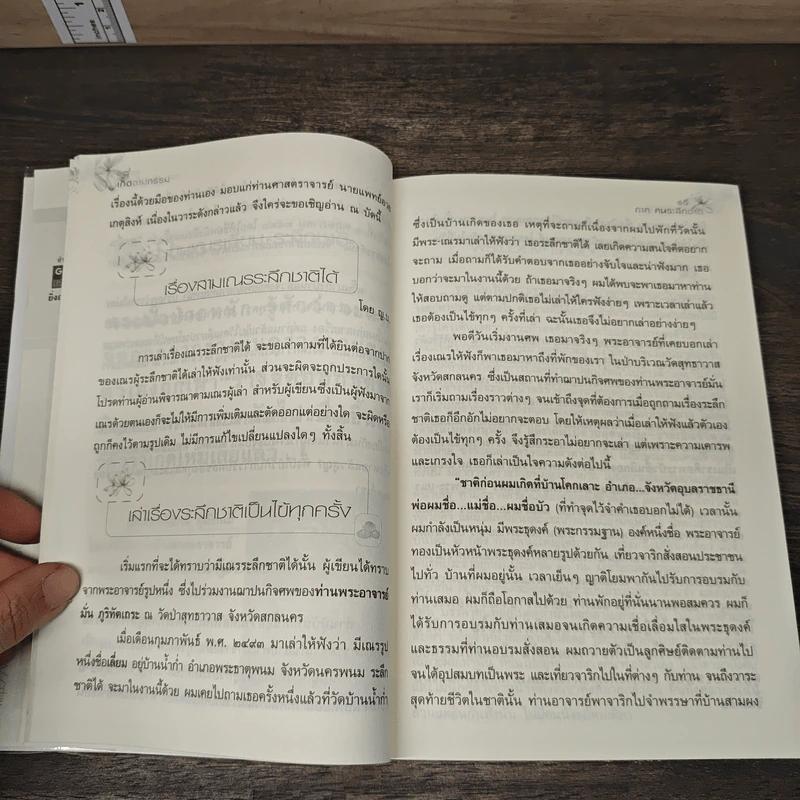 เกิดตามกรรม
เรื่องนี้ด้วยมือของท่านเอง มอบแก่ท่านศาสตราจารย์ นายแพทย์อวย
เกตุสิงห์ เนื่องในวาระดังกล่าวแล้ว จึงใคร่จะขอเชิญอ่าน ณ บัดนี้
เรื่องสามเณรระลึกชาติได้
โดย ญ.
การเล่าเรื่องเณรระลึกชาติได้ จะขอเล่าตามที่ได้ยินต่อจากปาก
ของเณรผู้ระลึกชาติได้เล่าให้ฟังเท่านั้น ส่วนจะผิดจะถูกประการใดนั้น
โปรดท่านผู้อ่านพิจารณาตามเณรผู้เล่า สำหรับผู้เขียนซึ่งเป็นผู้ฟังมาจาก
เณรด้วยตนเองก็จะไม่ให้มีการเพิ่มเติมและตัดออกแต่อย่างใด จะผิดหรือ
ถูกก็คงไว้ตามรูปเดิม ไม่มีการแก้ไขเปลี่ยนแปลงใดๆ ทั้งสิ้น
เล่าเรื่องระลึกชาติเป็นไข้ทุกครั้ง
เริ่มแรกที่จะได้ทราบว่ามีเณรระลึกชาติได้นั้น ผู้เขียนได้ทราบ
จากพระอาจารย์รูปหนึ่ง ซึ่งไปร่วมงานฌาปนกิจศพของท่านพระอาจารย์
มั่น ภูริทัตเถระ ณ วัดป่าสุทธาวาส จังหวัดสกลนคร
เมื่อเดือนกุมภาพันธ์ พ.ศ. ๒๔๙๓ มาเล่าให้ฟังว่า มีเณรรูป
หนึ่งชื่อเลี่ยม อยู่บ้านน้ำก่ำ อำเภอพระธาตุพนม จังหวัดนครพนม ระลึก
ชาติได้ จะมาในงานนี้ด้วย ผมเคยไปถามเธอครั้งหนึ่งแล้วที่วัดบ้านน้ำก่ำ
ภาค คนระลึกชาติ
ซึ่งเป็นบ้านเกิดของเธอ เหตุที่จะถามก็เนื่องจากผมไปพักที่วัดนั้น
มีพระ-เณรมาเล่าให้ฟังว่า เธอระลึกชาติได้ เลยเกิดความสนใจคิดอยาก
จะถาม เมื่อถามก็ได้รับคำตอบจากเธออย่างจับใจและน่าฟังมาก เธอ
บอกว่าจะมาในงานนี้ด้วย ถ้าเธอมาจริงๆ ผมได้พบจะพาเธอมาหาท่าน
ให้สอบถามดู แต่ตามปกติเธอไม่เล่าให้ใครฟังง่ายๆ เพราะเวลาเล่าแล้ว
เธอต้องเป็นไข้ทุกๆ ครั้งที่เล่า ฉะนั้นเธอจึงไม่อยากเล่าอย่างง่ายๆ
พอดีวันเริ่มงานศพ เธอมาจริงๆ พระอาจารย์ที่เคยบอกเล่า
เรื่องเณรให้ฟังก็พาเธอมาหาถึงที่พักของเรา ในป่าบริเวณวัดสุทธาวาส
จังหวัดสกลนคร ซึ่งเป็นสถานที่ทำฌาปนกิจศพของท่านพระอาจารย์มั่น
เราก็เริ่มถามเรื่องราวต่างๆ จนเข้าถึงจุดที่ต้องการเมื่อถูกถามเรื่องระลึก
ชาติเธอก็อึกอักไม่อยากจะตอบ โดยให้เหตุผลว่าเมื่อเล่าให้ฟังแล้วตัวเอง
ต้องเป็นไข้ทุกๆ ครั้ง จึงรู้สึกระอาไม่อยากจะเล่า แต่เพราะความเคารพ
และเกรงใจ เธอก็เล่าเป็นใจความดังต่อไปนี้
"ชาติก่อนผมเกิดที่บ้านโคกเลาะ อำเภอ...จังหวัดอุบลราชธานี
พ่อผมชื่อ...แม่ชื่อ...ผมชื่อบัว (ที่ทำจุดไว้จำคำเธอบอกไม่ได้) เวลานั้น
ผมกำลังเป็นหนุ่ม มีพระธุดงค์ (พระกรรมฐาน) องค์หนึ่งชื่อ พระอาจารย์
ทองเป็นหัวหน้าพระธุดงค์หลายรูปด้วยกัน เที่ยวจาริกสั่งสอนประชาชน
ไปทั่ว บ้านที่ผมอยู่นั้น เวลาเย็นๆ ญาติโยมพากันไปรับการอบรมกับ
ท่านเสมอ ผมก็ถือโอกาสไปด้วย ท่านพักอยู่ที่นั่นนานพอสมควร ผมก็
ได้รับการอบรมกับท่านเสมอจนเกิดความเชื่อเลื่อมใสในพระธุดงค์
และธรรมที่ท่านอบรมสั่งสอน ผมถวายตัวเป็นลูกศิษย์ติดตามท่านไป
จนได้อุปสมบทเป็นพระ และเที่ยวจาริกไปในที่ต่างๆ กับท่าน จนถึงวาระ
สุดท้ายชีวิตในชาตินั้น ท่านอาจารย์พาจาริกไปจำพรรษาที่บ้านสามผง